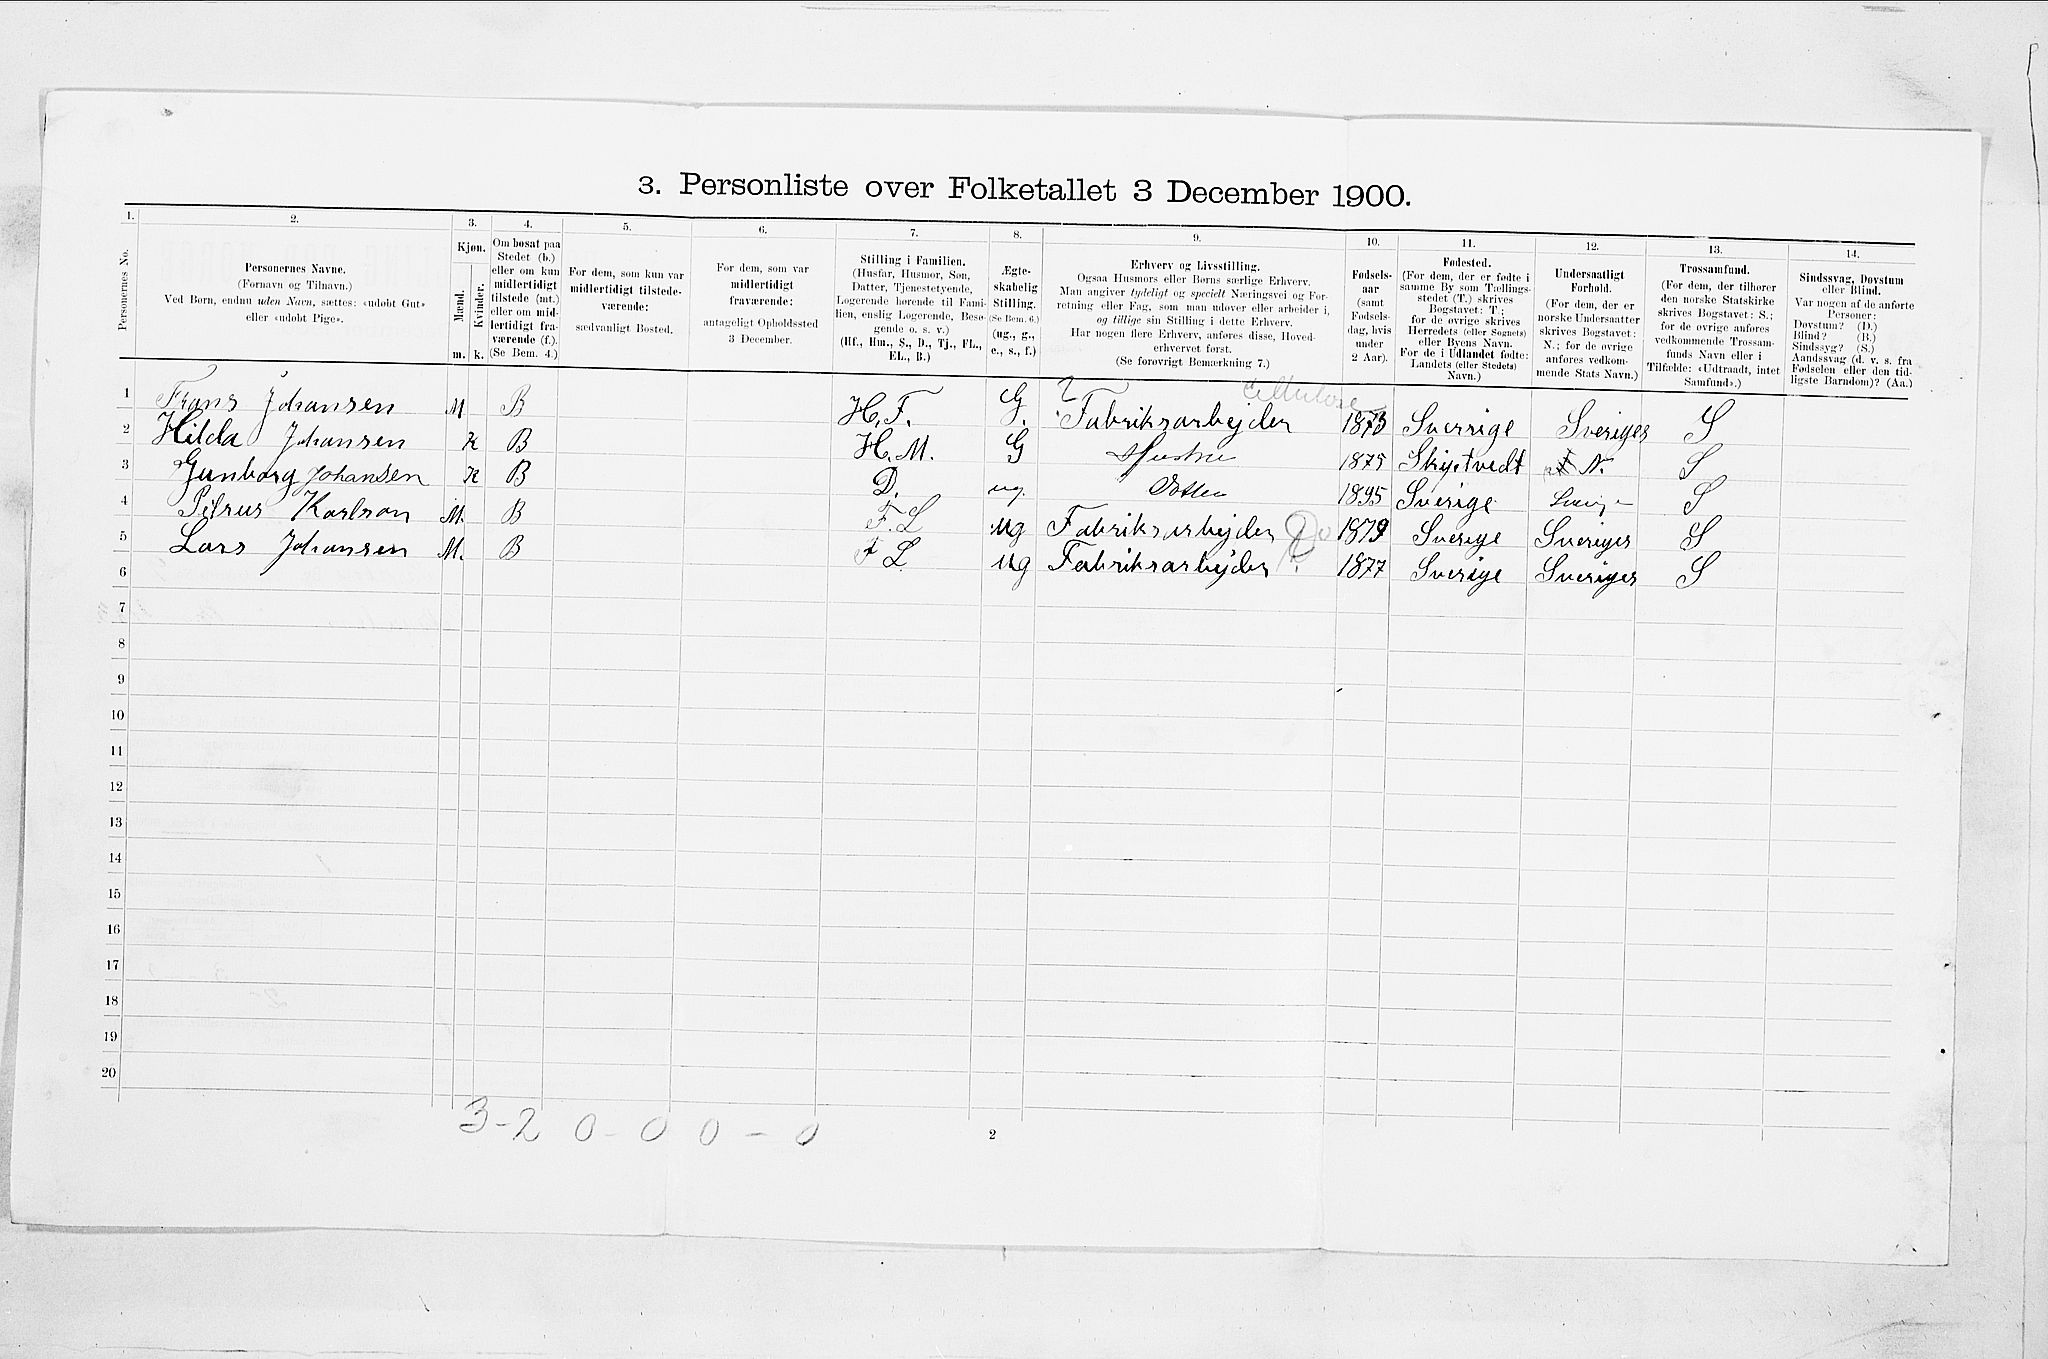 3. Personliste over Folketallet 3 December 1900.
1. 2. 3. 4. 5. 6. 7. 8. 9. 10. 11. 12. 13. 14.
Personernes No.
Personernes Navne.
(Fornavn og Tilnavn.)
Ved Børn, endnu uden Navn, sættes: «udøbt Gut»
eller «udøbt Pige».
Kjøn.
Mænd.
Kvinder.
m. k.
Om bosat paa
Stedet (b.)
eller om kun
midlertidigt
tilstede (mt.)
eller om mid-
lertidigt fra-
værende (f.).
(Se Bem. 4.)
For dem, som kun var
midlertidigt tilstede-
værende:
sædvanligt Bosted.
For dem, som var
midlertidigt
fraværende:
antageligt Opholdssted
3 December.
Stilling i Familien.
(Husfar, Husmor, Søn,
Datter, Tjenestetyende,
Logerende hørende til Fami-
lien, enslig Logerende, Besø-
gende o. s. v.)
(Hf., Hm., S., D., Tj., FL.,
EL., B.)
Ægte-
skabelig
Stilling.
(Se Bem. 6.)
(ug., g.,
e., s., f.)
Erhverv og Livsstilling.
Ogsaa Husmors eller Børns særlige Erhverv.
Man angiver tydeligt og specielt Næringsvei og For-
retning eller Fag, som man udøver eller arbeider i,
og tillige sin Stilling i dette Erhverv.
Har nogen flere Erhverv, anføres disse, Hoved-
erhvervet først.
(Se forøvrigt Bemærkning 7.)
Fødsels-
aar
(samt
Fødsels-
dag, hvis
under
2 Aar).
Fødested.
(For dem, der er fødte i
samme By som Tællings-
stedet (T.) skrives
Bogstavet: T.;
for de øvrige skrives
Herredets (eller Sognets)
eller Byens Navn.
For de i Udlandet fødte:
Landets (eller Stedets)
Navn.)
Undersaatligt
Forhold.
(For dem, der er
norske Undersaatter
skrives Bogstavet:
N.; for de øvrige
anføres vedkom-
mende Stats Navn.)
Trossamfund.
(For dem, der tilhører
den norske Statskirke
skrives Bogstavet: S.;
for de øvrige anføres
vedkommende Trossam-
funds Navn eller i
Tilfælde: «Udtraadt, intet
Samfund».)
Sindssvag, Døvstum
eller Blind.
Var nogen af de anførte
Personer:
Døvstum? (D.)
Blind? (B.)
Sindssyg? (S.)
Aandssvag (d. v. s. fra
Fødselen eller den tid-
ligste Barndom)? (Aa.)
Cellulose
1 Frans Johansen M B H.F. G. Fabriksarbejder 1873 Sverrige Sveriges S
2 Hilda Johansen K B H.M. G Hustru 1875 Skiptvedt N. S
3 Gunborg Johansen K B D. ug. Datter 1895 Sverige S
4 Petrus Karlson M. B F.L ug Fabriksarbejder Do 1879 Sverige Sveriges S
5 Lars Johansen M. B F L ug Fabriksarbejder 1877 Sverige Sveriges S
6
7
8
9
10
11
12
13
14
15
16
17
18
19
20
3-2 0-0 0-0
2